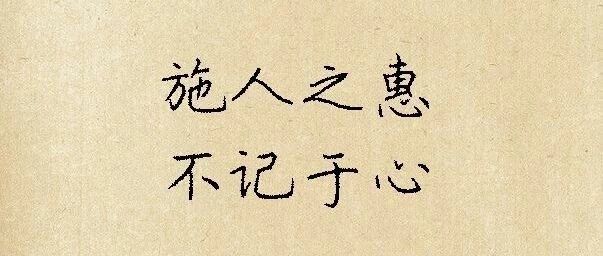 施人之惠
不记于心